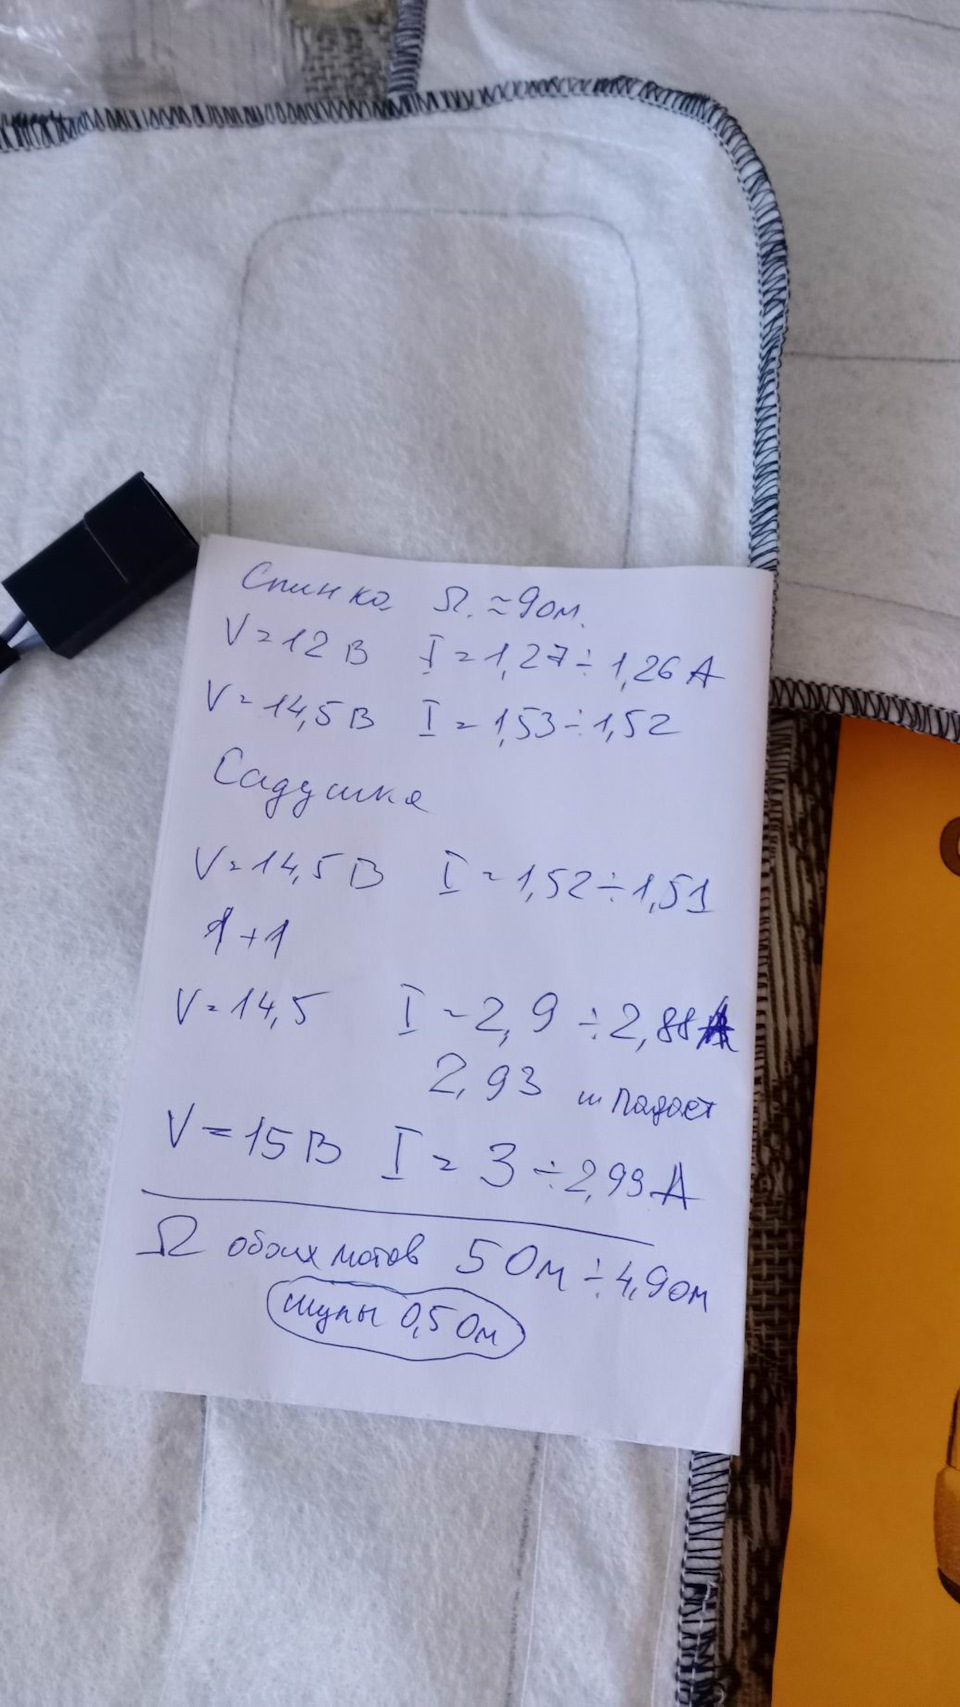 Спинка Ω ≈ 9 ом.
V = 12 В I = 1,27 ÷ 1,26 А
V = 14,5 В I = 1,53 ÷ 1,52
Садушка
V = 14,5 В I = 1,52 ÷ 1,51
1 + 1
V = 14,5 I = 2,9 ÷ 2,88 А
2,93 и падает
V = 15 В I = 3 ÷ 2,99 А
Ω обоих матов 5 Ом ÷ 4,9 ом
щупы 0,5 Ом